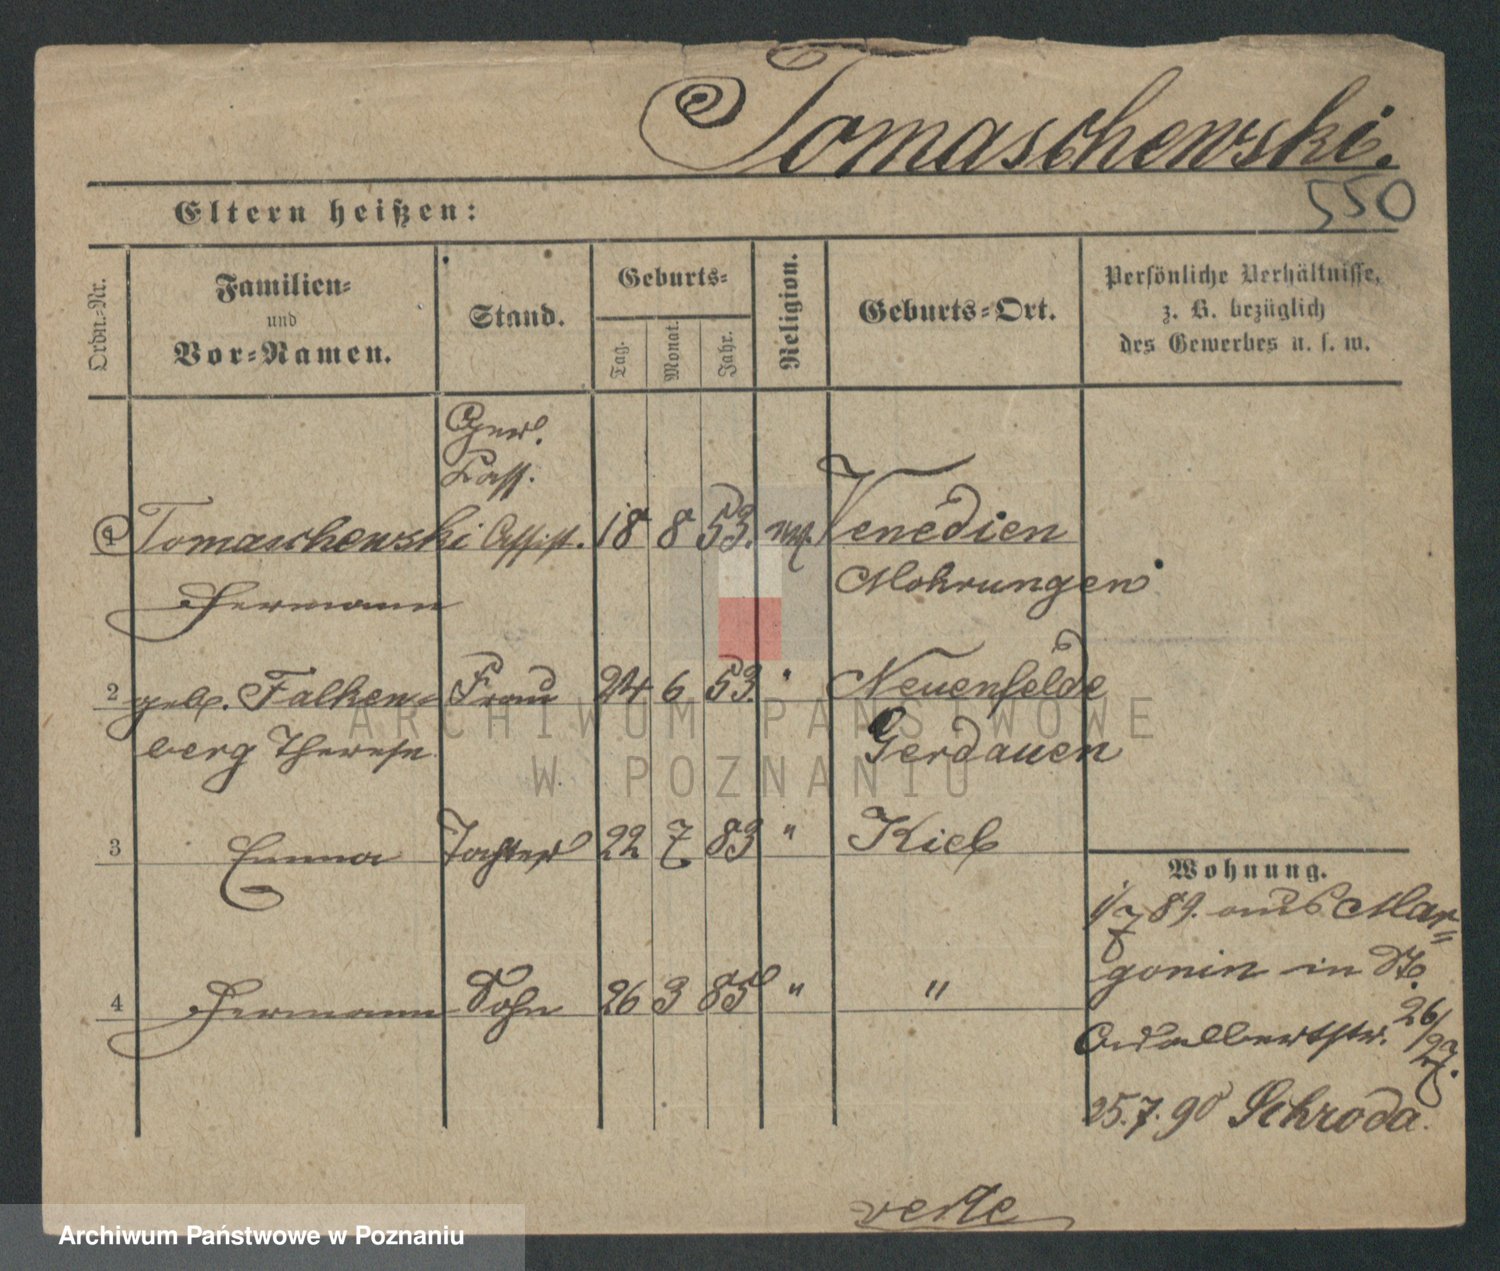 Tomaschewski.
550
Eltern heißen:
Ordn.-Nr.
Familien-
und
Vor-Namen.
Stand.
Geburts-
Tag.
Monat.
Jahr.
Religion.
Geburts-Ort.
Persönliche Verhältnisse,
z. B. bezüglich
des Gewerbes u. s. w.
Cass.
1 Tomaschewski Assist. 18 8 53. Venedien
Hermann Mohrungen
2 geb. Falken- Frau 24 6 53. " Neuenfelde
berg Therese Gerdauen
3 Emma Tochter 22 7 83 " Kiel
4 Hermann Sohn 26 3 85 " "
Wohnung.
1/7 89. aus Mar-
gonin in St.
Adalbertstr. 26/27.
25.7.90 Schroda.
verte
ARCHIWUM PAŃSTWOWE
W POZNANIU
Archiwum Państwowe w Poznaniu